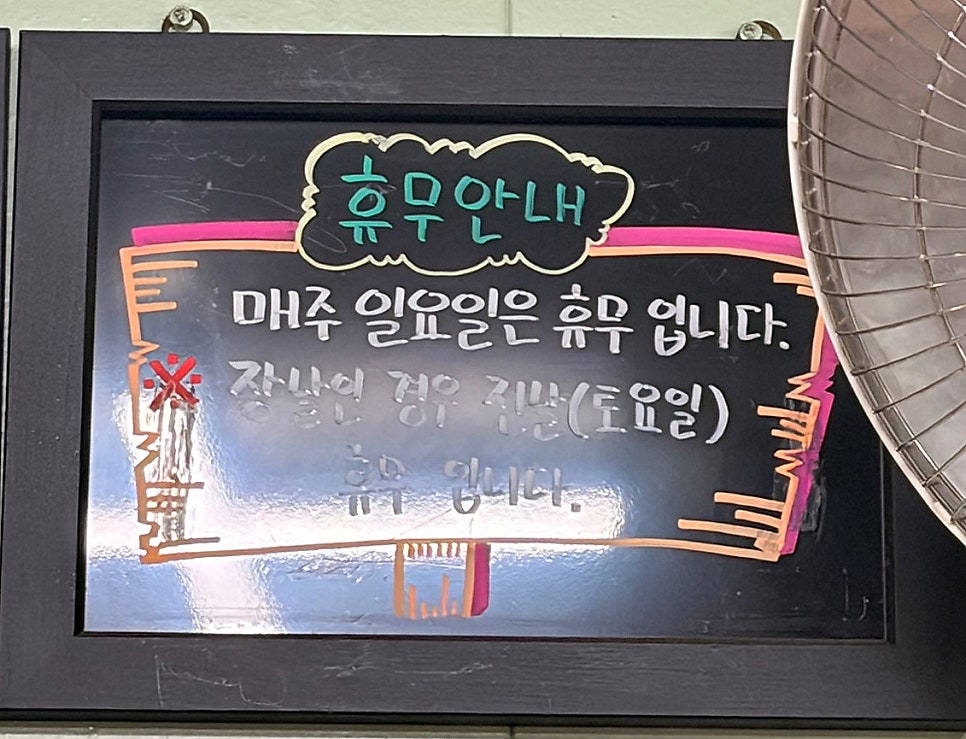 휴무안내
매주 일요일은 휴무 입니다.
※ 장날인 경우 전날(토요일)
휴무 입니다.